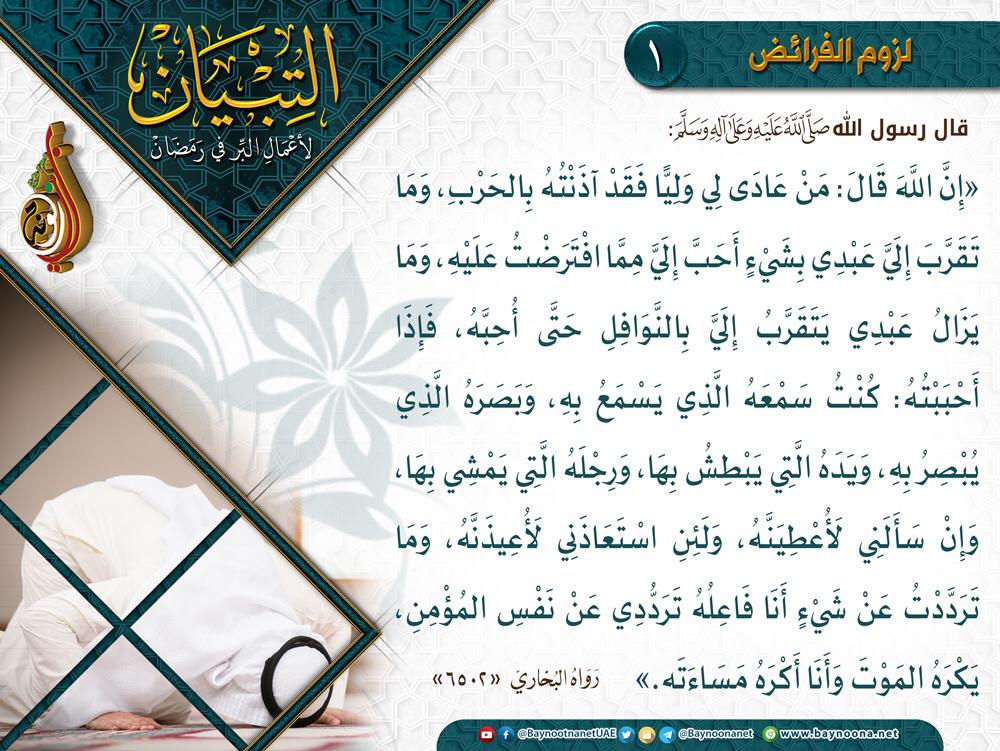 لزوم الفرائض
١
التِّبْيَان
لأعْمَالِ البِّر في رَمَضَانْ
قال رسول الله صَلَّى اللَّهُ عَلَيْهِ وَعَلَى آلِهِ وَسَلَّمَ:
«إِنَّ اللَّهَ قَالَ: مَنْ عَادَى لِي وَلِيًّا فَقَدْ آذَنْتُهُ بِالحَرْبِ، وَمَا
تَقَرَّبَ إِلَيَّ عَبْدِي بِشَيْءٍ أَحَبَّ إِلَيَّ مِمَّا افْتَرَضْتُ عَلَيْهِ، وَمَا
يَزَالُ عَبْدِي يَتَقَرَّبُ إِلَيَّ بِالنَّوَافِلِ حَتَّى أُحِبَّهُ، فَإِذَا
أَحْبَبْتُهُ: كُنْتُ سَمْعَهُ الَّذِي يَسْمَعُ بِهِ، وَبَصَرَهُ الَّذِي
يُبْصِرُ بِهِ، وَيَدَهُ الَّتِي يَبْطِشُ بِهَا، وَرِجْلَهُ الَّتِي يَمْشِي بِهَا،
وَإِنْ سَأَلَنِي لَأُعْطِيَنَّهُ، وَلَئِنِ اسْتَعَاذَنِي لَأُعِيذَنَّهُ، وَمَا
تَرَدَّدْتُ عَنْ شَيْءٍ أَنَا فَاعِلُهُ تَرَدُّدِي عَنْ نَفْسِ المُؤْمِنِ،
يَكْرَهُ المَوْتَ وَأَنَا أَكْرَهُ مَسَاءَتَه.» رَوَاهُ البُخَارِيّ «٦٥٠٢»
@BaynootnanetUAE @Baynoonanet www.baynoona.net